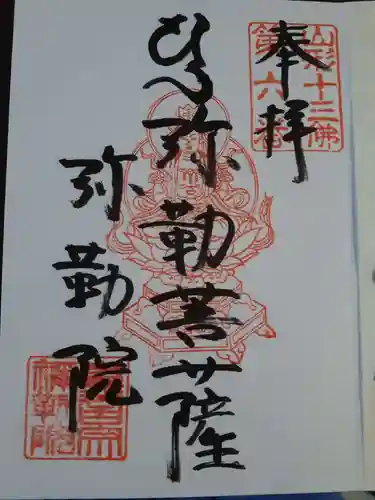 奉拝
山形十三佛
第六番
弥勒菩薩
弥勒院
弥勒院